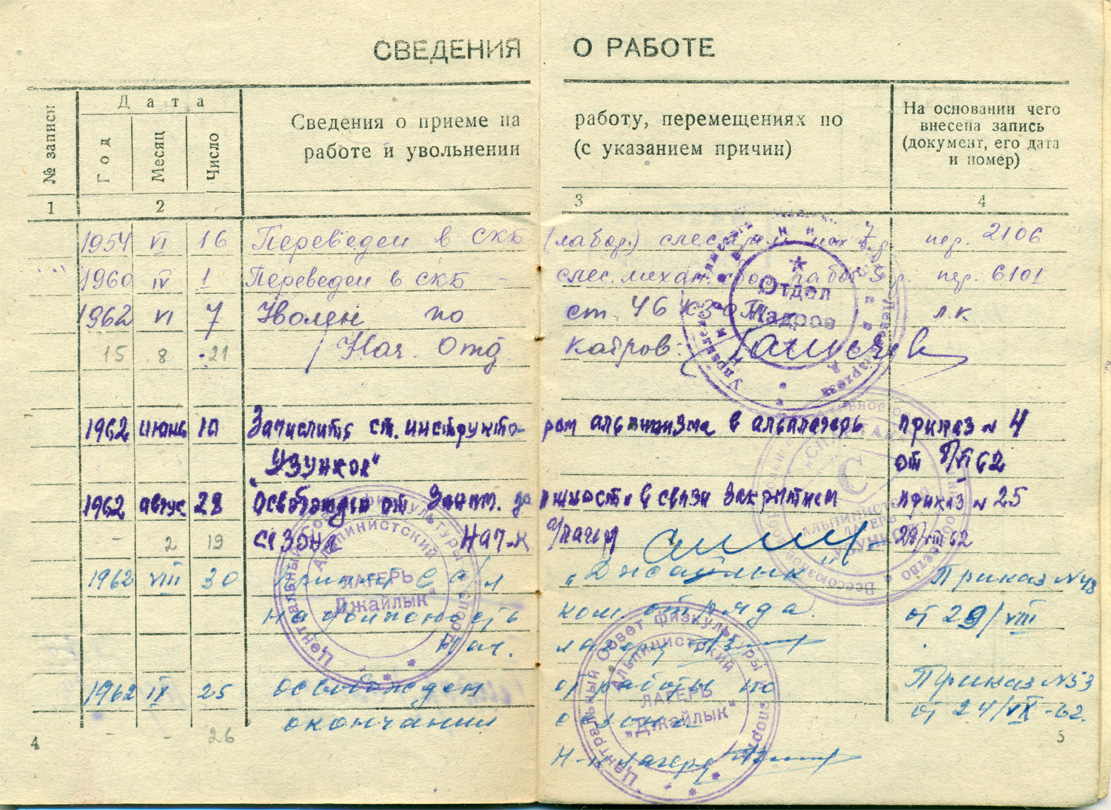 СВЕДЕНИЯ О РАБОТЕ
№ записи
Дата
Год
Месяц
Число
Сведения о приеме на работу, перемещениях по
работе и увольнении (с указанием причин)
На основании чего
внесена запись
(документ, его дата
и номер)
1 2 3 4
1954 VI 16 Переведен в СКБ (лабор.) слесарем 7 пер. 2106
1960 IV 1 Переведен в СКБ — слес. механ. пер. 6101
1962 VI 7 Уволен по ст. 46 КЗоТ л.к
15 8 21 Нач. Отд. кадров.
1962 июнь 10 Зачислить ст. инструкто- ром альпинизма в альплагерь приказ № 4
"Узункол" от VI 62
1962 август 28 Освобожден от занят. должности в связи закрытием приказ № 25
- 2 19 сезона Нач-к а/лагеря 29/VIII 62
1962 VIII 30 принят в а/л "Джайлык" Приказ № 48
на должность ком. отряда от 29/VIII
Нач. лагеря
1962 IX 25 освобожден от работы по Приказ № 53
окончании от 24/IX-62.
- - 26 Н-к лагеря
4 5
Отдел
Кадров
Центральный Совет физкультуры
Альпинистский
ЛАГЕРЬ
"Джайлык"
Центральный Совет физкультуры спорта
Альпинистский
ЛАГЕРЬ
"Джайлык"
"СПАРТАК"
С
АЛЬПИНИСТСКИЙ
ЛАГЕРЬ
"УЗУНКОЛ"